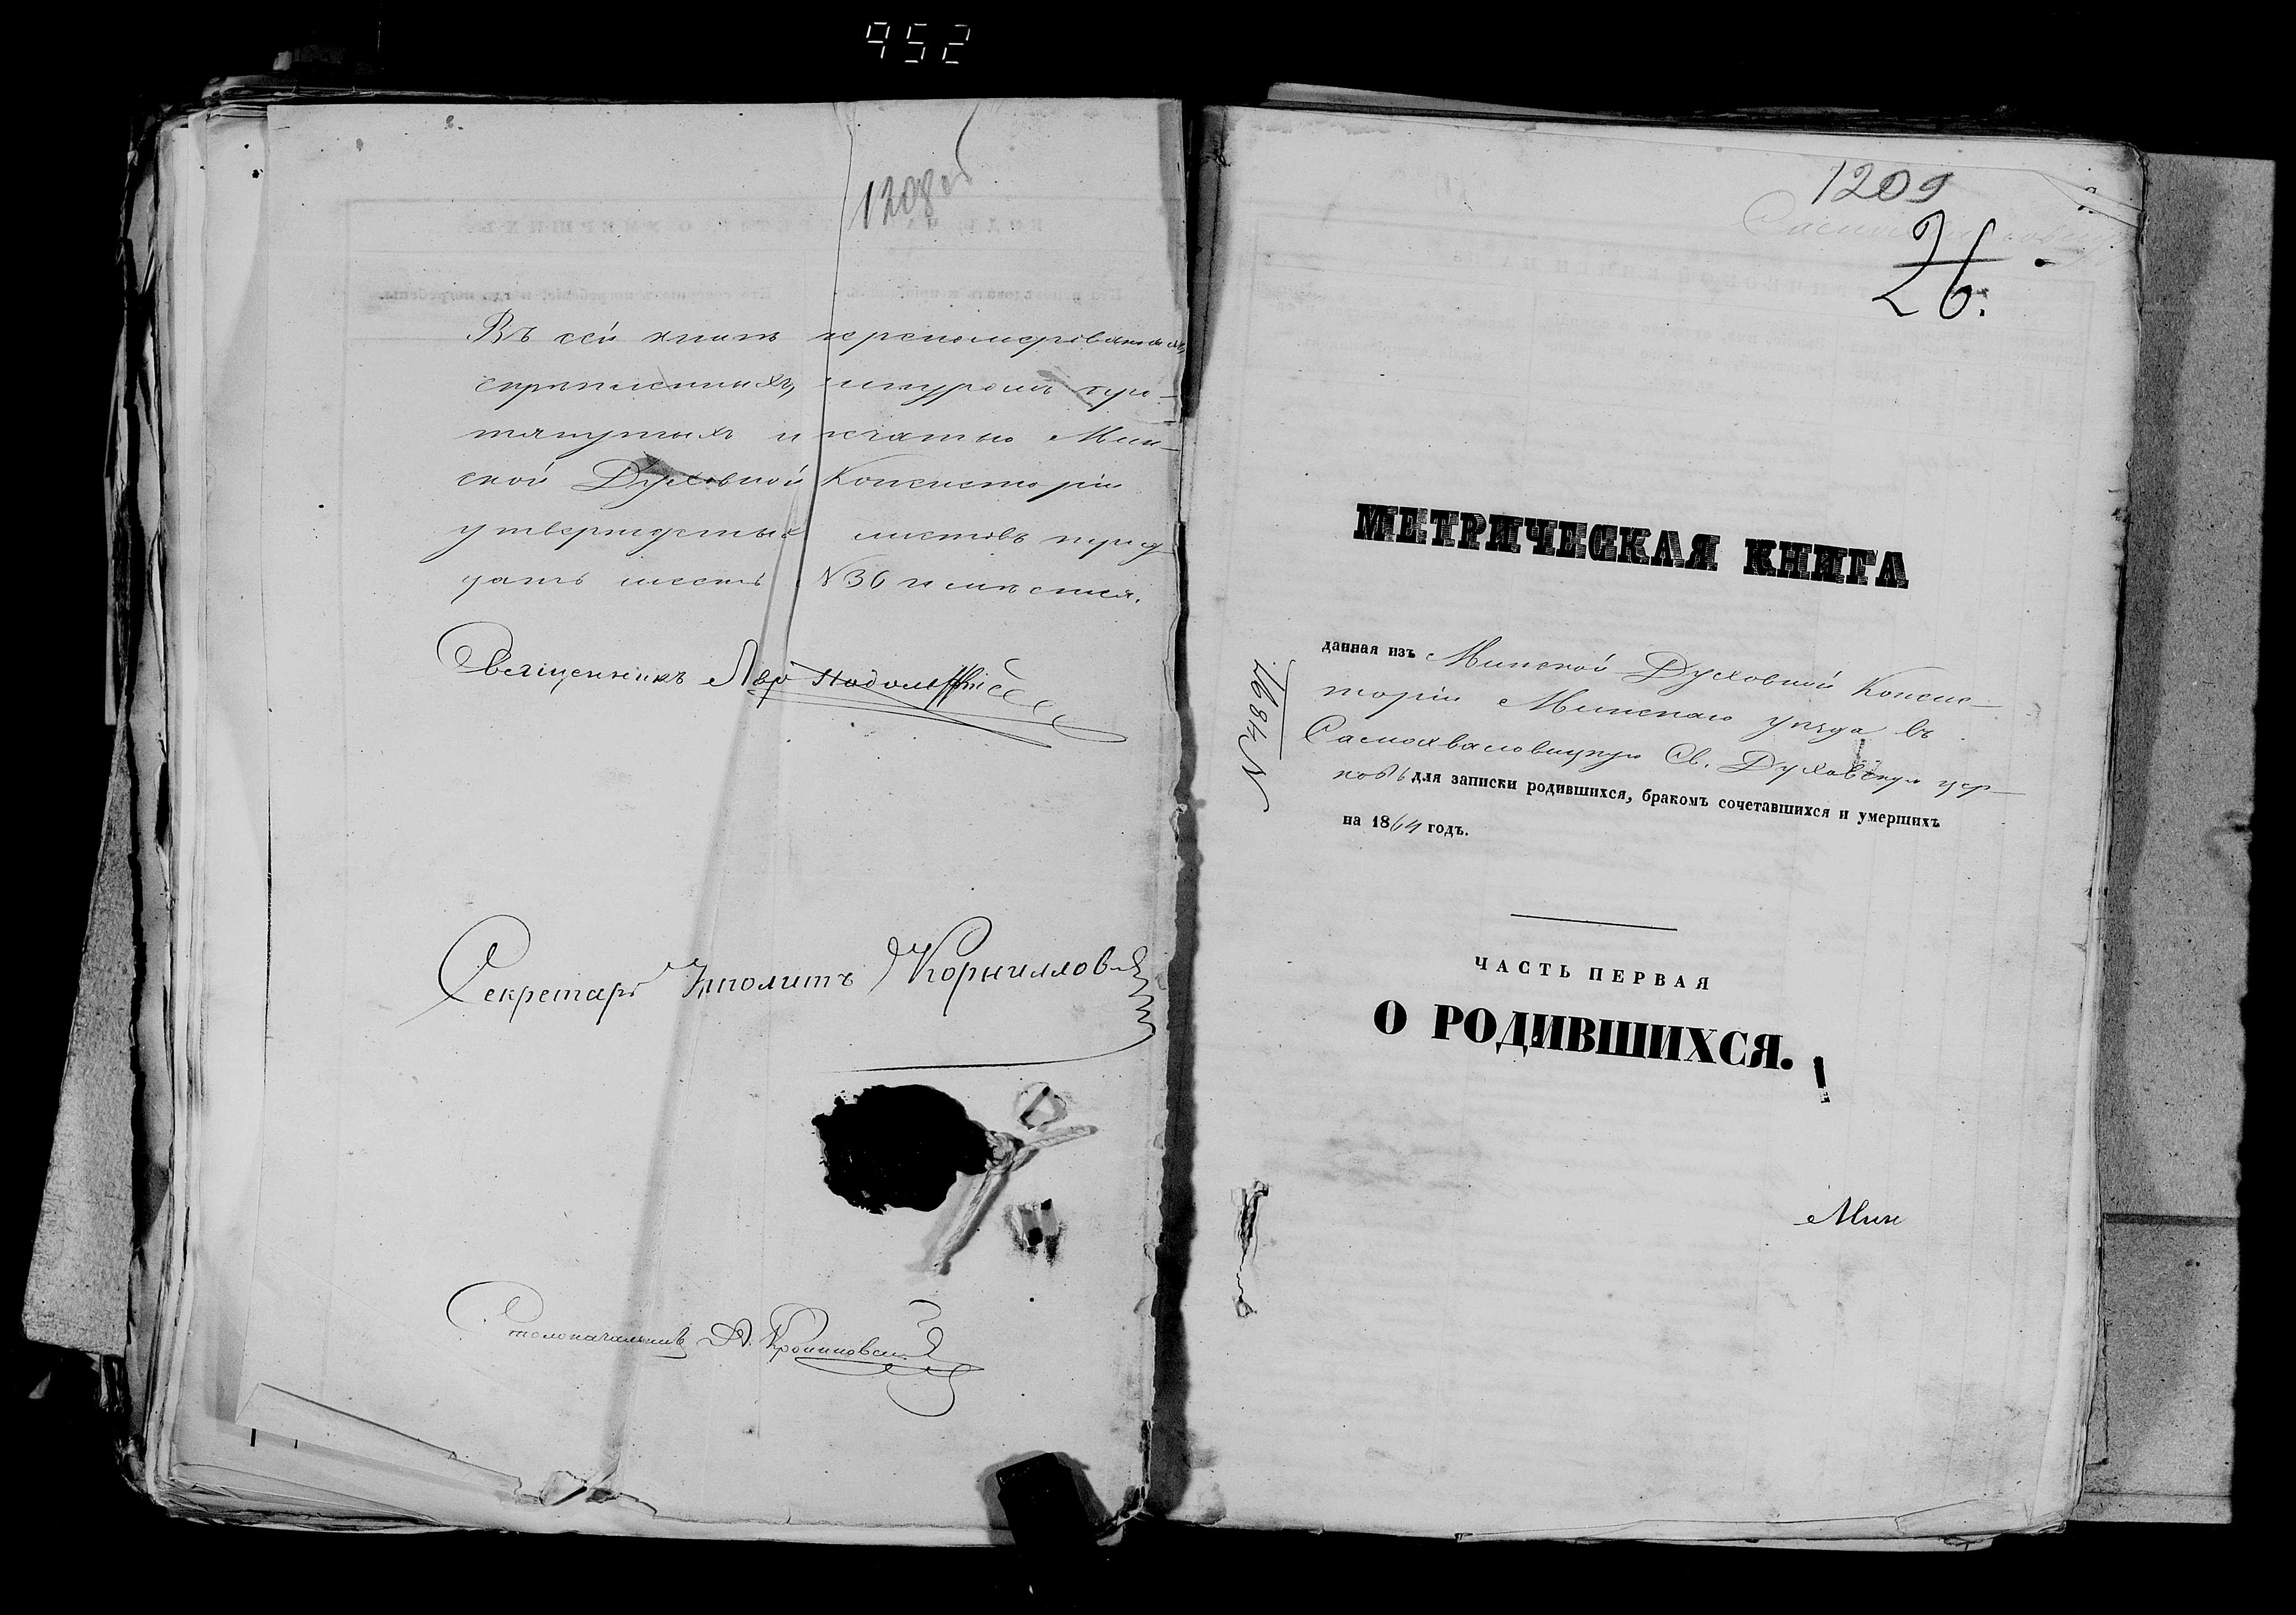 952
1208об
Въ сей книгѣ перенумерованныхъ,
скрѣпленныхъ, шнуромъ про-
тянутыхъ и печатью Мин-
ской Духовной Консисторіи
утвержденныхъ листовъ трид
цать шесть №36 имѣется.
Священникъ
Секретарь Иполитъ Корниллов
Столоначальникъ А.
1209
26.
МЕТРИЧЕСКАЯ КНИГА
данная изъ Минской Духовной Консис-
торіи Минскаго уѣзда въ
Самохваловицкую Св. Духовскую цер-
ковь для записки родившихся, бракомъ сочетавшихся и умершихъ
на 1864 годъ.
ЧАСТЬ ПЕРВАЯ
О РОДИВШИХСЯ.
Мин